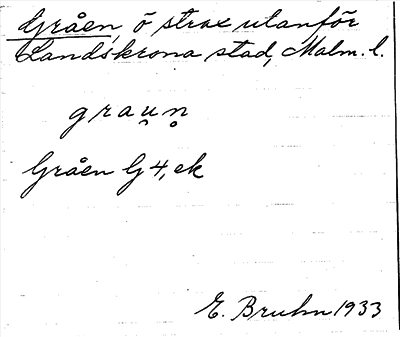 Gråen, ö strax utanför
Landskrona stad, Malm. l.
grau̯n̥
Gråen G4, ek
E. Bruhn 1933